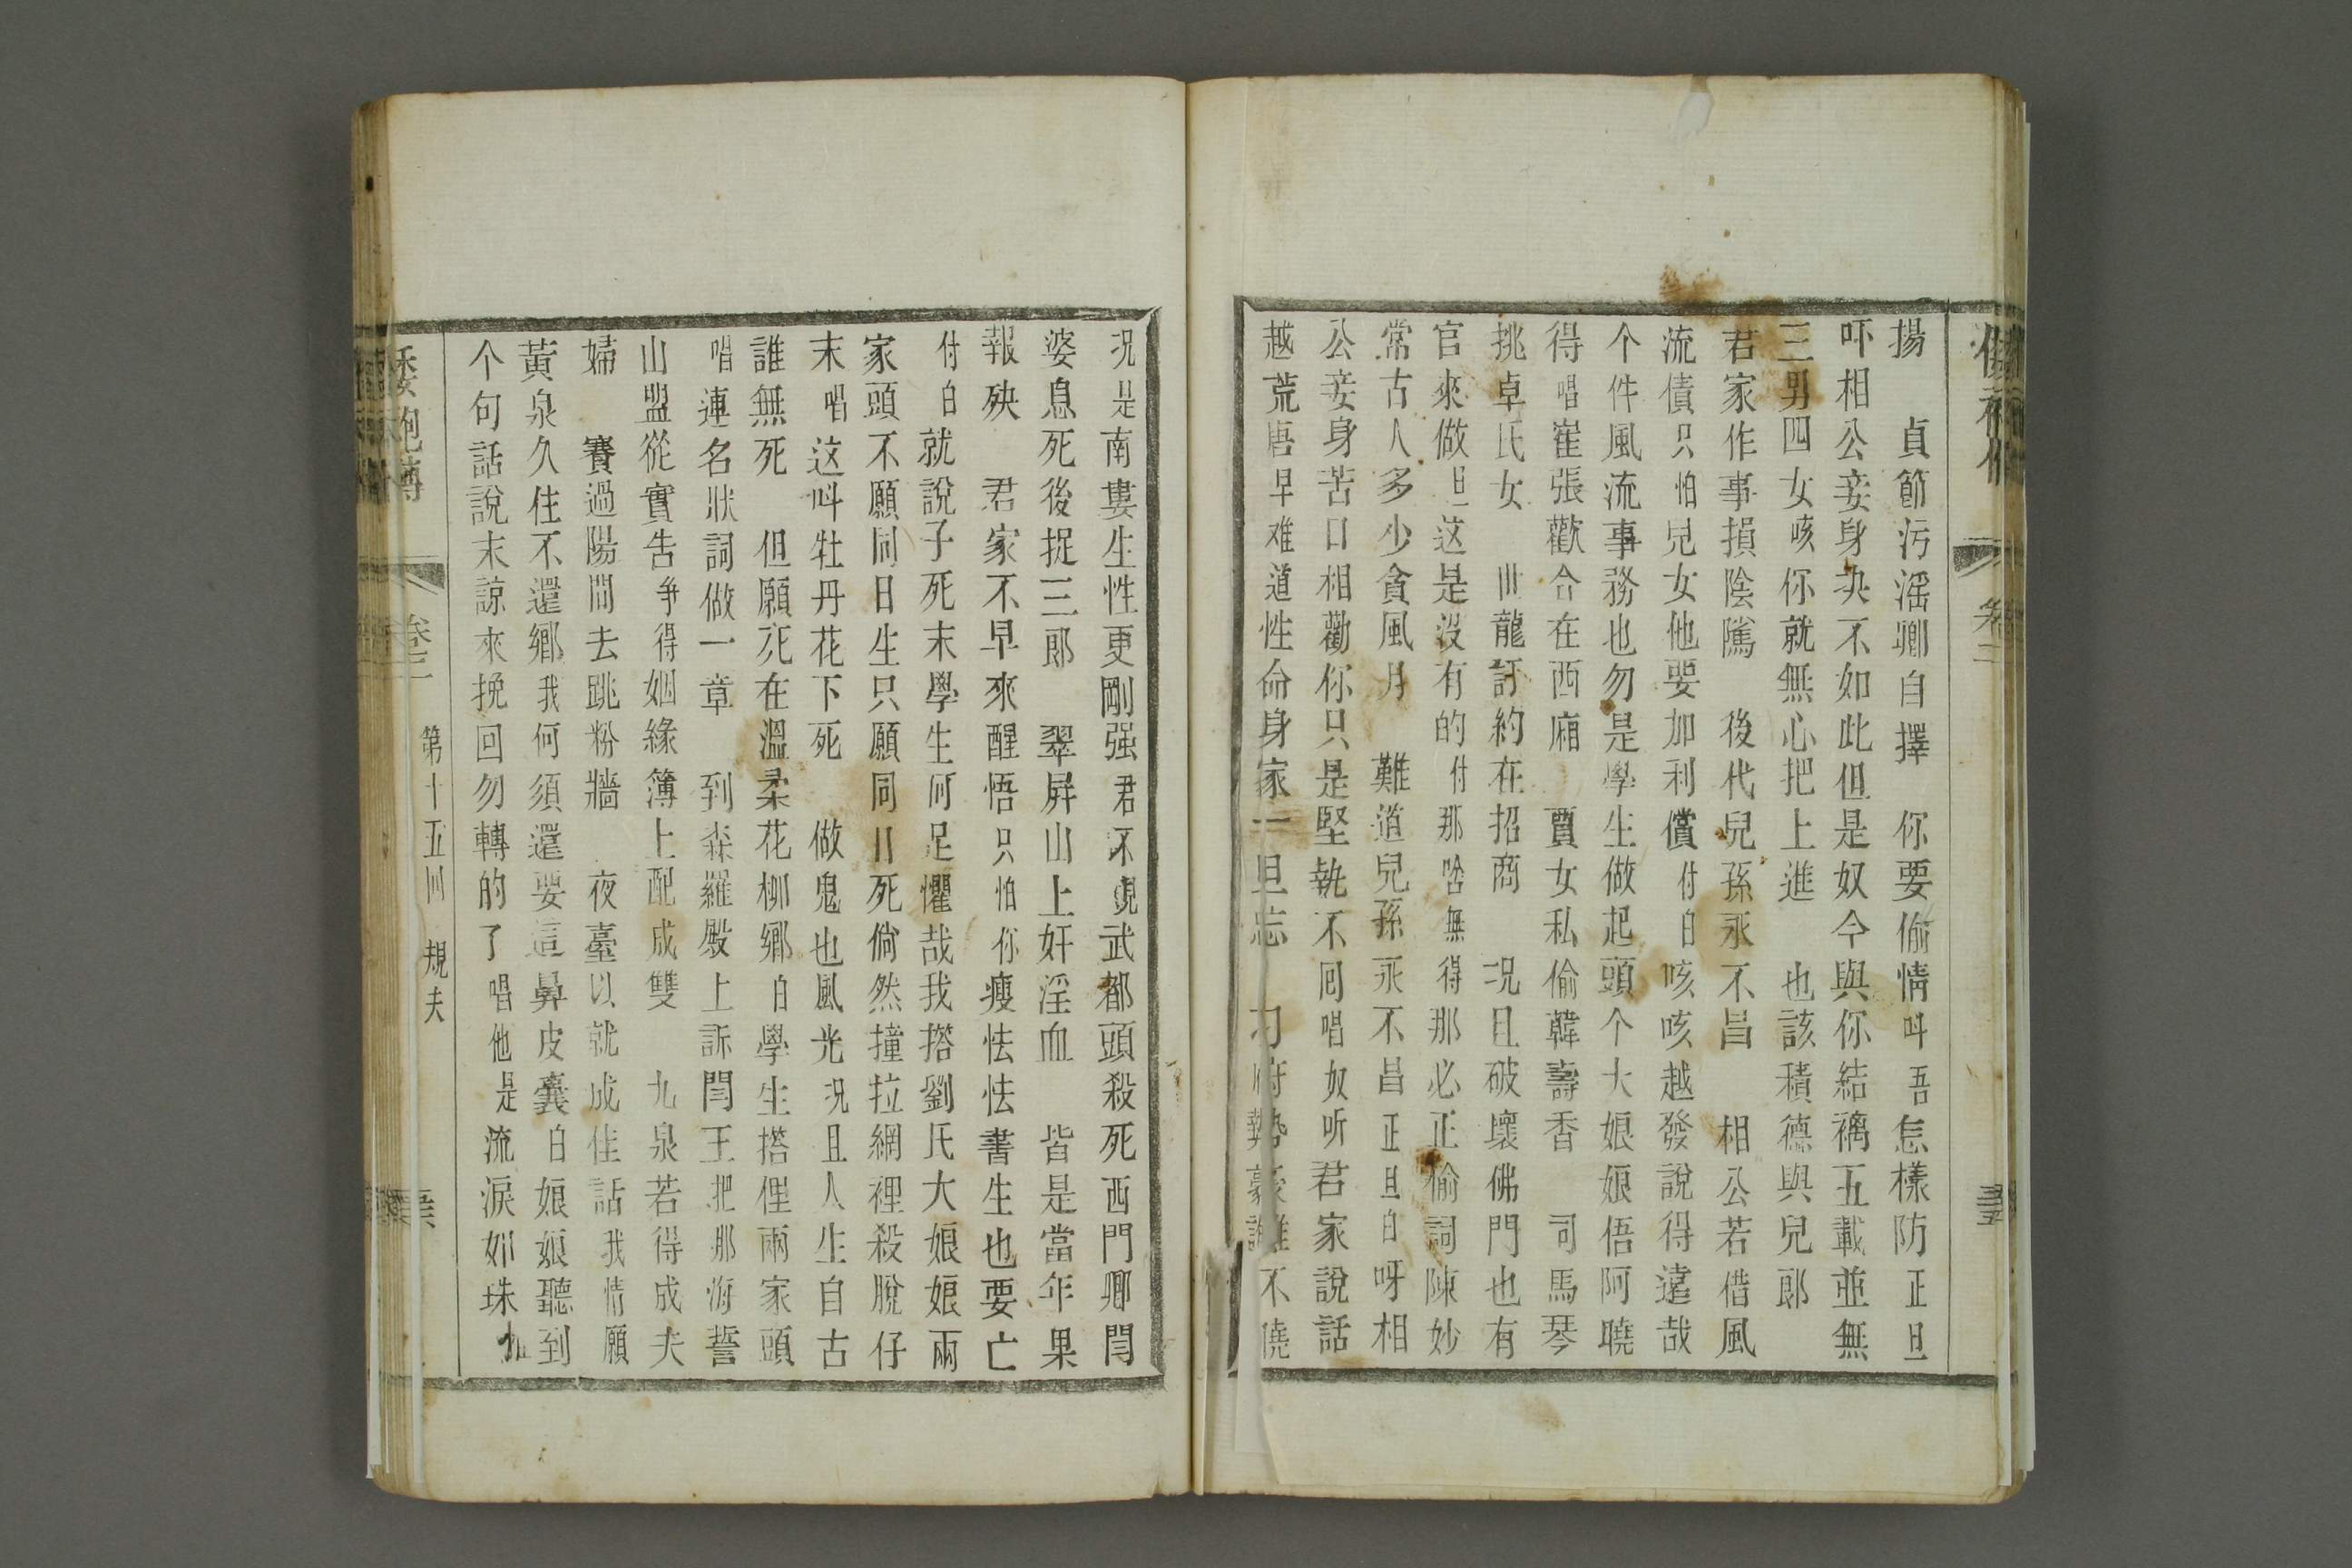 揚　貞節污滛卿自擇　你要偷情呌吾怎樣防正旦
吓相公妾身決不如此但是奴今與你結褵五載並無
三男四女咳你就無心把上進　也該積德與兒郎
君家作事損陰隲　後代兒孫永不昌　相公若借風
流債只怕兒女他要加利償付白咳咳越發說得遠哉
个件風流事務也勿是學生做起頭个大娘娘俉阿曉
得唱崔張歡合在西廂　賈女私偷韓壽香　司馬琴
挑卓氏女　世龍訂約在招商　况且破壞佛門也有
官來做旦这是沒有的付那啥無得那必正偷詞陳妙
常古人多少貪風月　難道兒孫永不昌正旦白呀相
公妾身苦口相勸你只是堅執不囘唱奴听君家說話
越荒唐早难道性命身家一旦忘　刁府勢豪誰不曉
况是南婁生性更剛强君不覌武都頭殺死西門卿閆
婆息死後捉三郎　翠屏山上奸淫血　皆是當年果
報殃　君家不早來醒悟只怕你瘦怯怯書生也要亡
付白就說子死末學生何足懼哉我搭劉氏大娘娘兩
家頭不願同日生只願同日死倘然撞拉網裡殺脫仔
末唱这呌牡丹花下死　做鬼也風光况且人生自古
誰無死　但願死在溫柔花柳鄉白學生搭俚兩家頭
唱連名狀詞做一章　到森羅殿上訴閆王把那海誓
山盟從實告爭得姻緣簿上配成雙　九泉若得成夫
婦　賽過陽間去跳粉牆　夜臺以就成佳話我情願
黃泉久住不還鄉我何須還要這臭皮囊白娘娘聽到
个句話說末諒來挽回勿轉的了唱他是流淚如珠
倭袍傳　卷二　第十五回　規夫